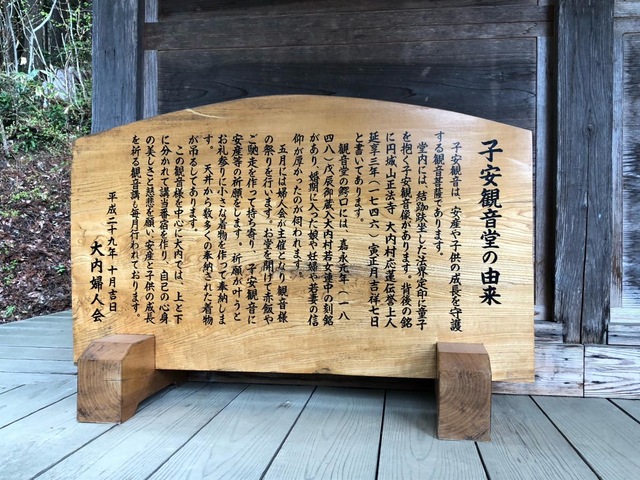 子安観音堂の由来
子安観音は、安産や子供の成長を守護
する観音菩薩であります。
堂内には、結跏趺坐した法界定印に童子
を抱く子安観音像があります。背後の銘
に円城山正法寺 大内村応運伝誉上人
延享三年(一七四六) 寅正月吉祥七日
と書いてあります。
観音堂の鰐口には、嘉永元年(一八
四八)戊辰御蔵入大内村若女講中の刻銘
があり、婚期に入った娘や妊婦、若妻の信
仰が厚かったのが伺われます。
五月には婦人会が主催となり、観音様
の祭りを行います。お堂を開けて赤飯や
ご馳走を作って持ち寄り、子安観音に
安産等の祈願をします。祈願が叶うと
お礼参りに小さな着物を作って奉納しま
す。天井から数多くの奉納された着物
が吊るしてあります。
この観音様を中心に大内では、上と下
に分かれて講当番宿を作り、自己の心身
の美しさと慈悲を願い、安産と子供の成長
を祈る観音講も毎月行われております。
平成二十九年十月吉日
大内婦人会